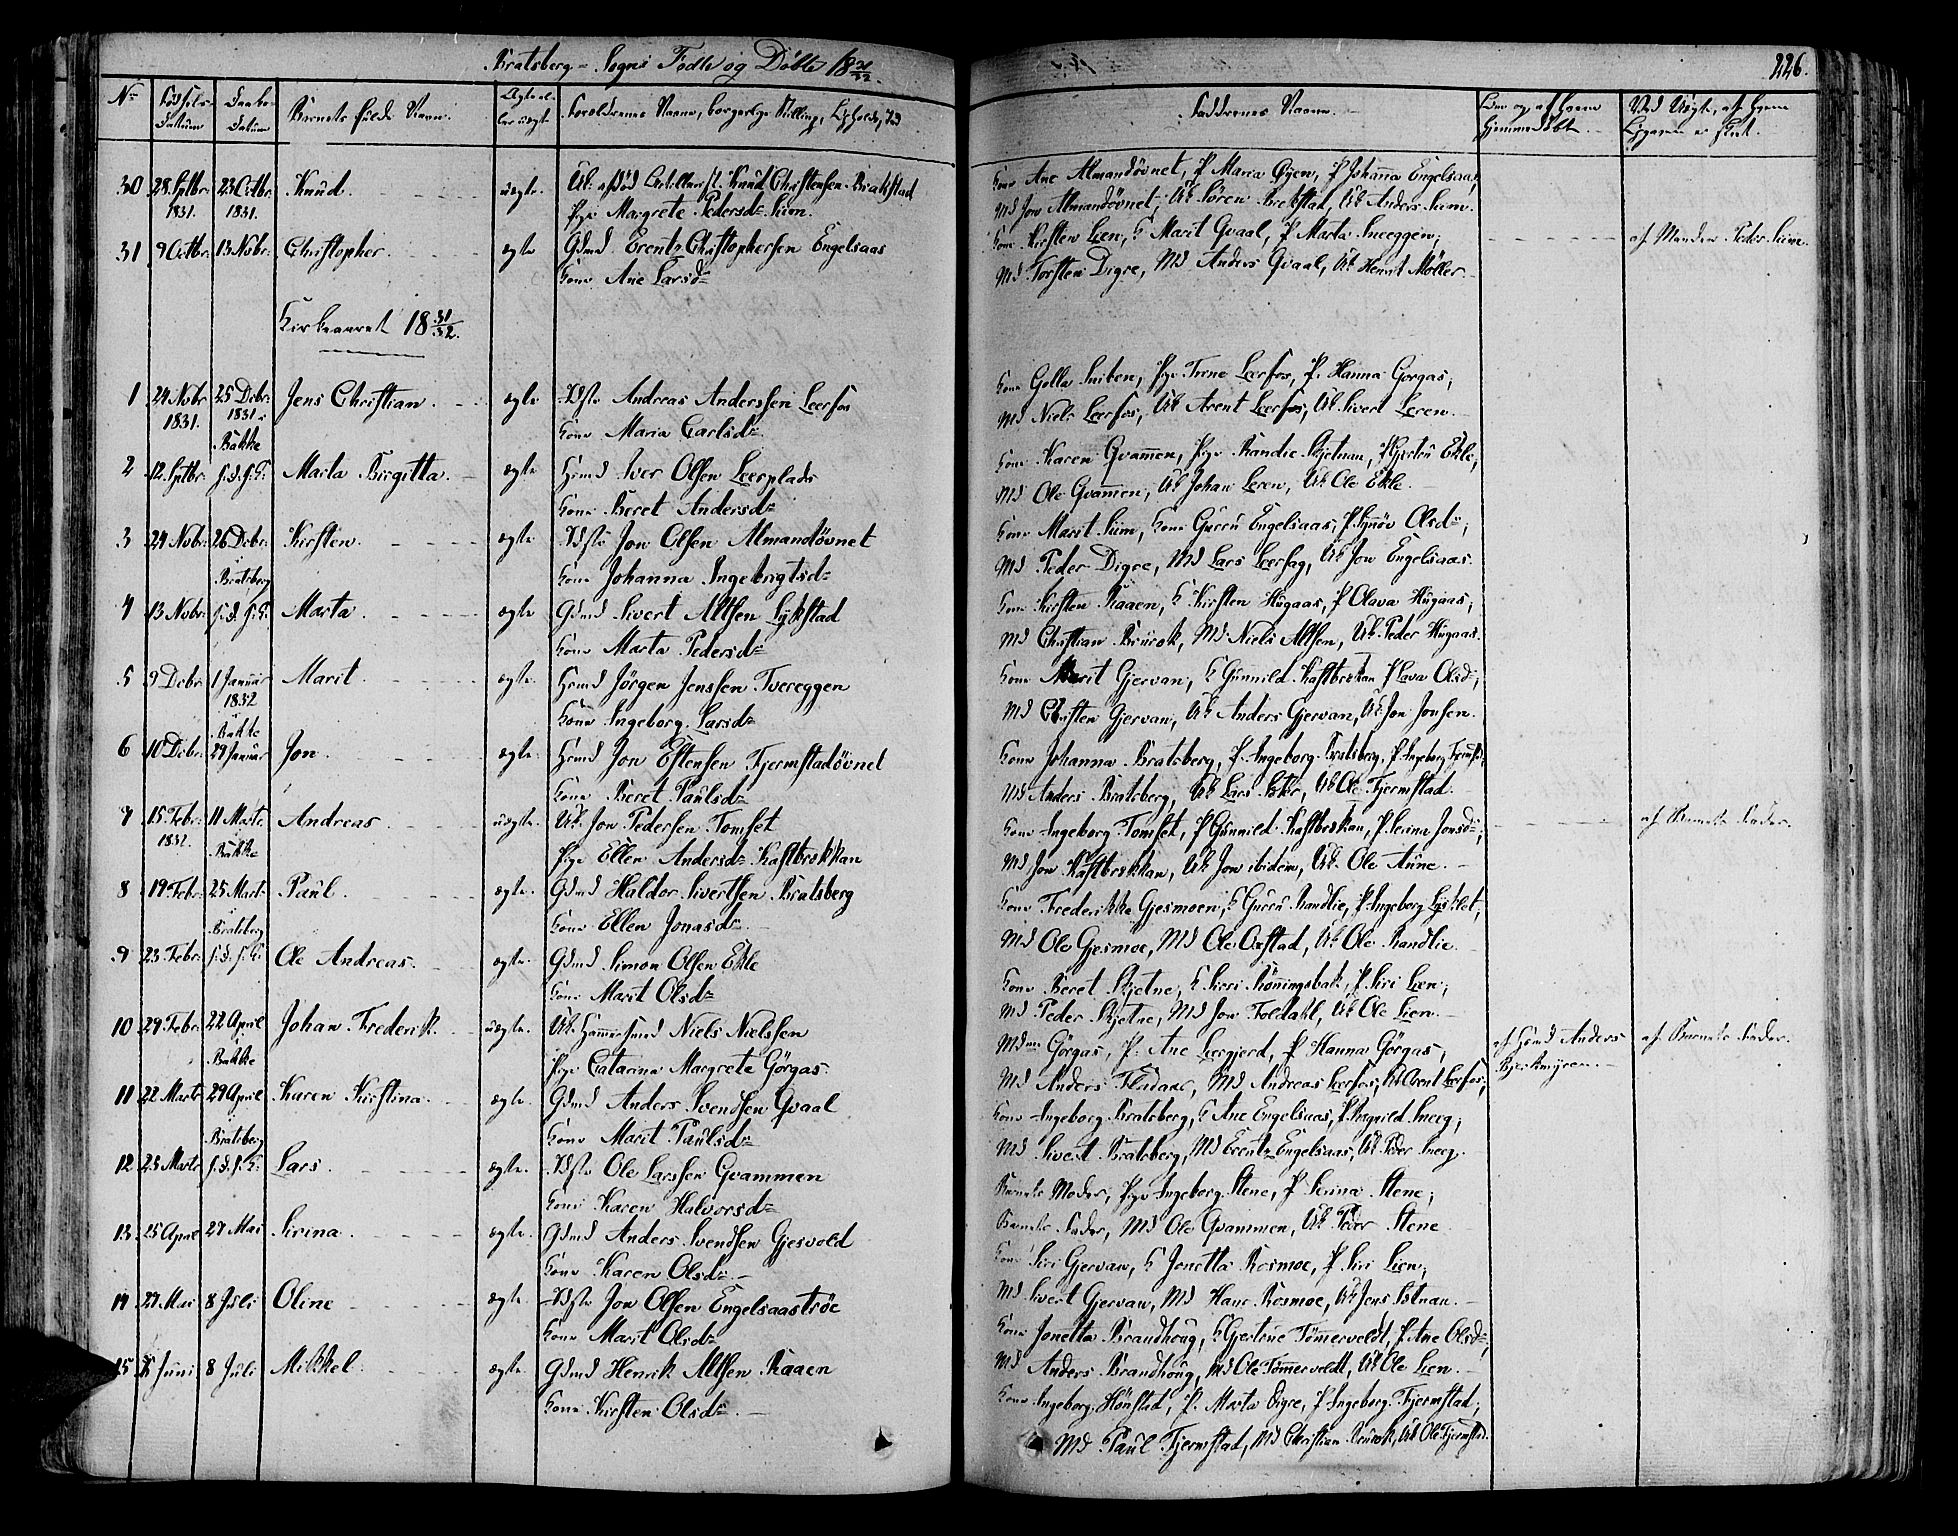 Bratsberg - Sogns Fødte og Døbte 18 31/32.
226.
No
Fødsels-Datum
Daabs-Datum
Barnets fulde Navn.
Forældrenes Navne, borgerlige Stilling,
Faddrenes Navne.
30 28 Sptbr. 1831. 23 Octbr. 1831. Knud. uægte.
Knud Christensen Brakstad
Pige Margrete Pedersdr.
Kone Ane Almandövnet, P. Maria Øyen, P. Johanna Engelsaas,
Md Jon Almandövnet, Uk. Sören Brakstad, Uk Anders
31 9 Octbr. 13 Novbr. Christopher. ægte
Gdmd Erentz Christophersen Engelsaas
Kone Ane Larsdr
Kone Kirsten Lien, K Marit Qvaal, P. Marta Sneeggen;
Md Torsten Digre, Md Anders Qvaal, Uk. Henrik Möller.
Kirkeaaret 18 31/32.
1 24 Novbr 1831. 25 Decbr. 1831. Bakke Jens Christian. ægte
Andreas Anderssen Leerfos
Kone Maria Carlsdr.
Kone Golla Sniben, Pige Trine Leerfos, P. Hanna Görgas,
Md Niels Leerfos, Uk Arent Leerfos, Uk. Sivert Leren.
2 12. Sptbr. Marta Birgitta. ægte
Hsmd Iver Olsen Leerplads
Kone Beret Andersdr
Kone Karen Qvammen, Pige Randie Skjetnan,
Md Ole Qvammen, Uk Johan Leren, Uk Ole Ekle.
3 24 Novbr. 26 Decbr. Bratsberg Kirsten. ægte
Jon Olsen Almandövnet
Kone Johanna Ingebrigtsdr
Kone Marit Kone Gurru Engelsaas, P. Synöv Olsdr,
Md Peder Digre, Md Lars Leerfag, Uk Jon Engelsaas.
4 13 Novbr. Marta. ægte
Gdmd Sivert Altsen Lykstad
Kone Marta Pedersdr
Kone Kirsten Raaen, K Kirsten Hugaas, P Olava Hugaas;
Md Christian Brurok, Md Niels Altsen, Uk. Peder Hugaas.
5 9 Decbr. 1 Januar 1832 Bakke Marit. ægte
Hsmd Jörgen Jenssen Tvereggen
Kone Ingeborg Larsdr
Kone Marit Gjervan, K Gunnild Kastbrekkan P Lava Olsdr;
Md Christen Gjervan, Uk Anders Gjervan, Uk. Jon Jonsen.
6 10 Decbr. 29 Januar Jon. ægte.
Hsmd Jon Estensen Fjermstadövnet
Kone Beret Paulsdr
Kone Johanna Bratsberg, P. Ingeborg Bratsberg, P. Ingeborg
Md Anders Bratsberg, Uk Lars Uk Ole Fjermstad.
7 15 Febr. 1832. 11 Marts Bakke Andreas. uægte.
Uk. Jon Pedersen Tomset
Pige Ellen Andersdr. Kastbrekkan
Kone Ingeborg Tomset, P Gunnild Kastbrekkan, P. Serina Jonsdr;
Md Jon Kastbrekkan, Uk. Jon ibidem, Uk. Ole Aune.
af Barnets Fader.
8 19 Febr. 25 Mart. Bratsberg Paul. ægte.
Gdmd Haldor Sivertsen Bratsberg
Kone Ellen Jonasdr.
Kone Frederikke Gjesmoen, K Gurru Randlie, P. Ingeborg
Md Ole Gjesmoe, Md Ole Oxstad, Uk Ole Randlie.
9 23 Febr. Ole Andreas. ægte.
Gdmd Simon Olsen Ekle
Kone Marit Olsdr
Kone Beret Skjetne, K Sirri Rönningsbak, P. Siri Lien;
Md Peder Skjetne, Md Jon Foldahl, Uk. Ole Lien.
10 29 Febr. 22 April Bakke Johan Frederik. uægte.
Uk. Niels Nielssen
Pige Catarina Margrete Görgas
Görgas, P. Ane Leergjerd, P. Hanna Görgas;
Md Anders Md Andreas Leerfos, Uk Arent Leerfos;
af Hsmd Anders
af Barnets Fader.
11 22 Marts 29 April Bratsberg Karen Kirstina. ægte.
Gdmd Anders Svendsen Qvaal
Kone Marit Paulsdr
Kone Ingeborg Bratsberg, K Ane Engelsaas, P. Ingeborg Sneeg;
Md Sivert Bratsberg, Md Erentz Engelsaas, Uk Peder Sneeg.
12 23 Marts Lars. ægte.
Ole Larssen Qvammen
Kone Karen Halvorsdr
Barnets Moder, Pige Ingeborg Stene, P. Serina Stene;
Barnets Fader, Md Ole Qvammen, Uk Peder Stene
13 25 April 27 Mai Sirina. ægte.
Gdmd Anders Svendsen Gjesvold
Kone Karen Olsdr.
Kone Siri Gjervan, K Jonetta Rosmoe, P. Siri Lien,
Md Sivert Gjervan, Md Hans Rosmoe, Uk Jens
14 27 Mai 8 Juli Oline ægte.
Jon Olsen Engelsaastrøe
Kone Marit Olsdr
Kone Jonetta Brandhoug, K Gjertrue Tömmerveldt, P. Ane Olsdr;
Md Anders Brandhoug, Md Ole Tömmerveldt, Uk Ole Lien.
15 Juni 8 Juli Mikkel. ægte.
Gdmd Henrik Altsen Raaen
Kone Kirsten Olsdr.
Kone Ingeborg Hönstad, P. Marta Digre, P Ingeborg Fjermstad;
Md Paul Fjermstad, Md Christian Brurok, Uk Ole Fjermstad.